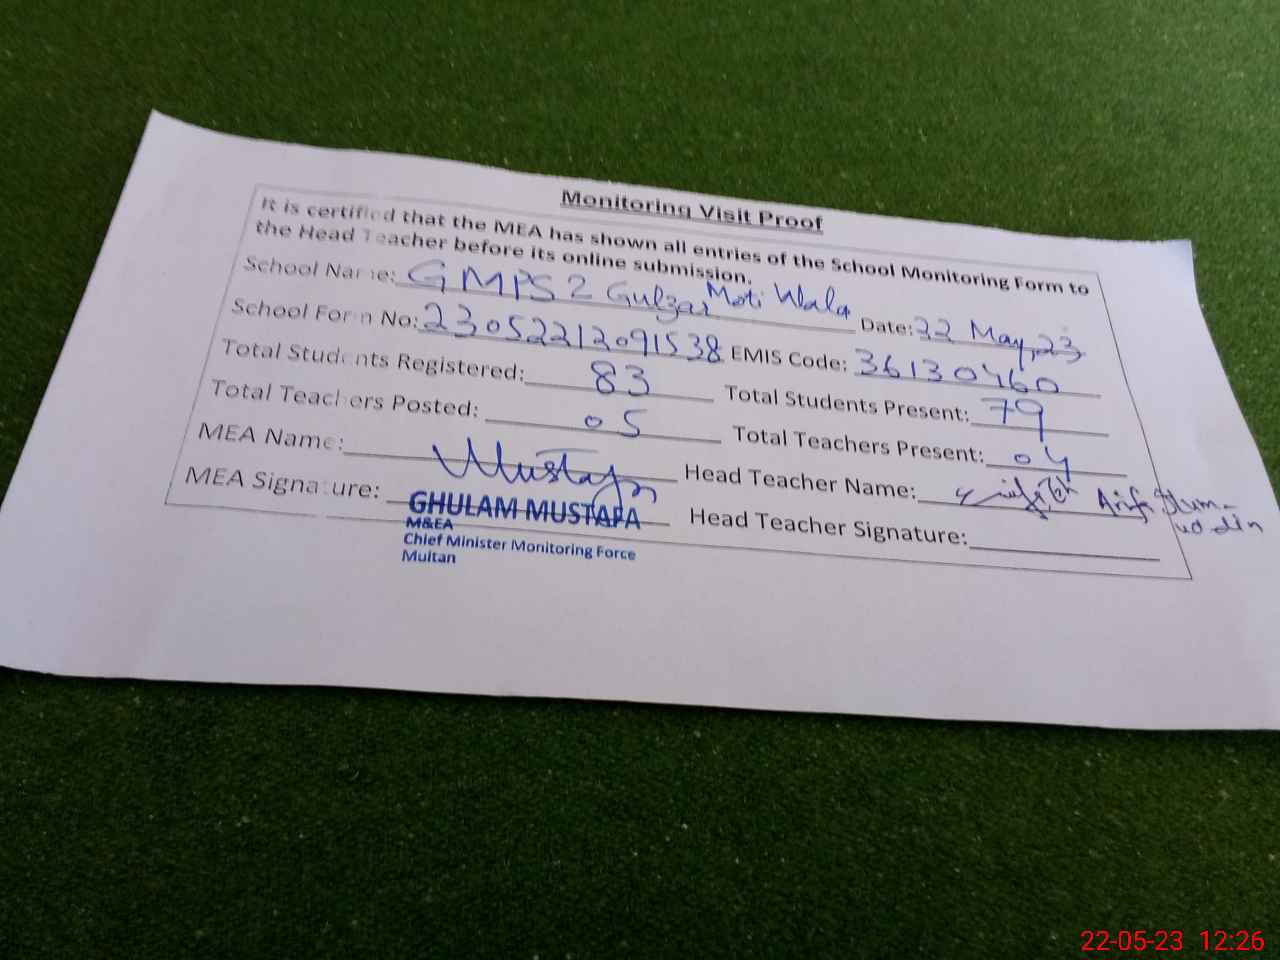 Monitoring Visit Proof
It is certified that the MEA has shown all entries of the School Monitoring Form to
the Head Teacher before its online submission.
School Name: GMPS 2 Gulzar Moti Wala Date: 22 May, 23
School Form No: 23052212091538 EMIS Code: 36130460
Total Students Registered: 83 Total Students Present: 79
Total Teachers Posted: 05 Total Teachers Present: 04
MEA Name: Mustafa Head Teacher Name:
MEA Signature: Head Teacher Signature:
GHULAM MUSTAFA
M&EA
Chief Minister Monitoring Force
Multan
22-05-23 12:26